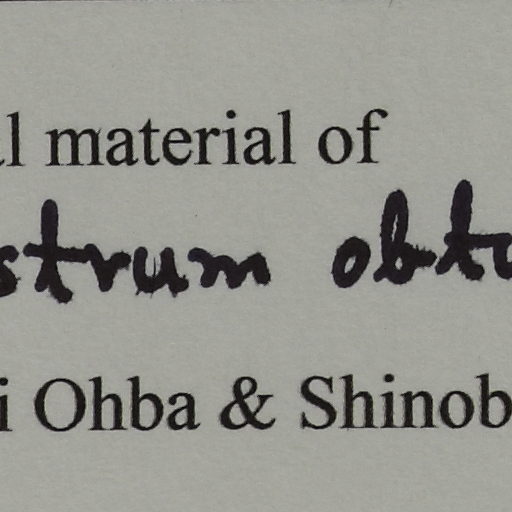 al material of
strum obtu
i Ohba & Shinob